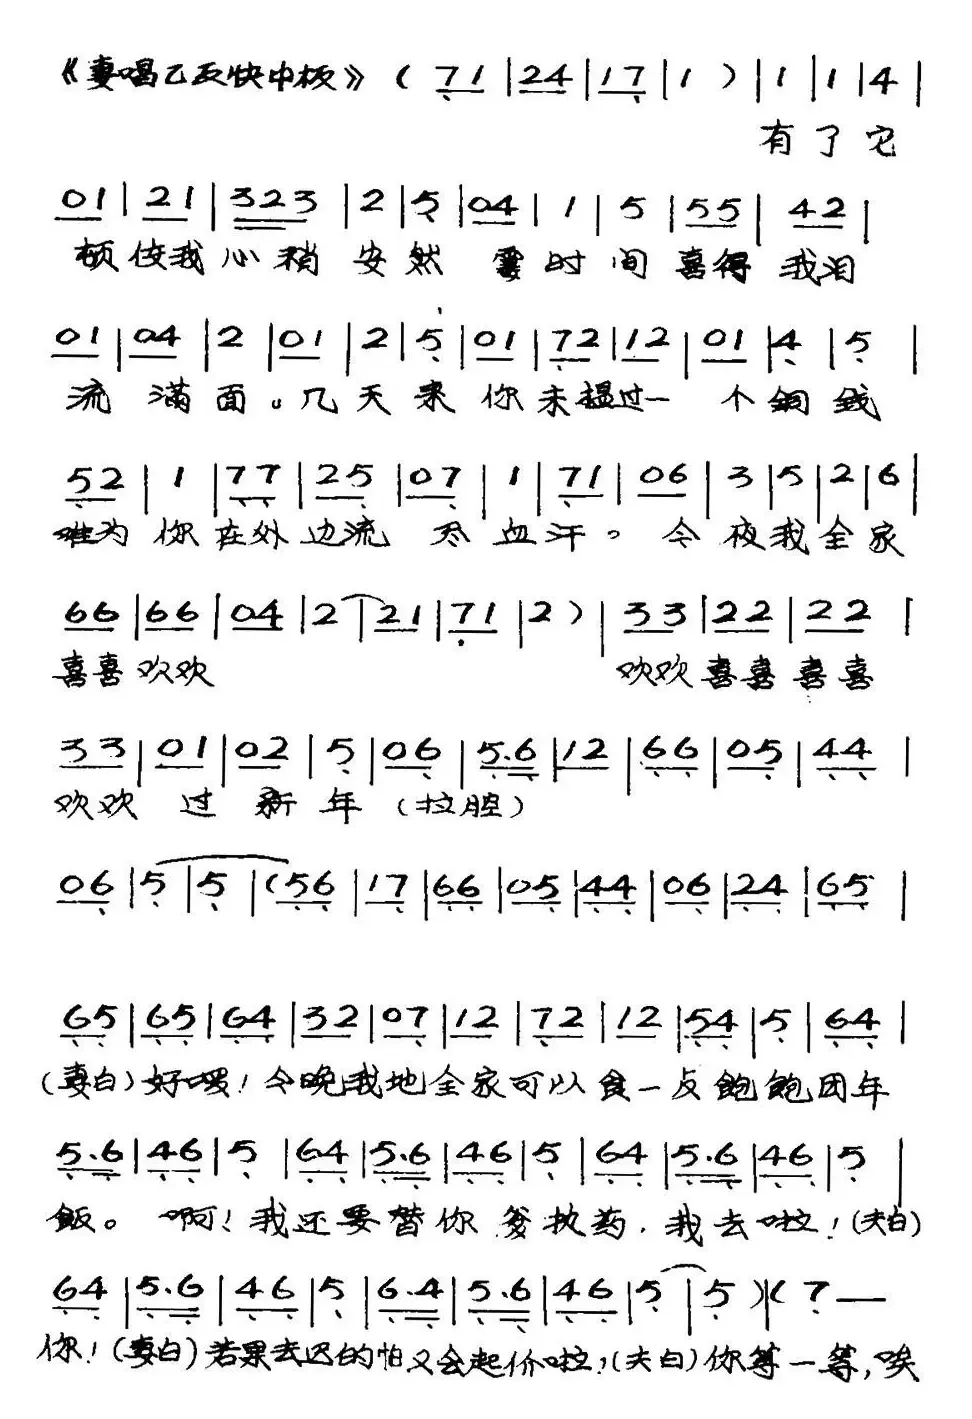 《妻唱乙反快中板》( 71 | 24 | 17 | 1 ) | 1 | 1 | 4 |
有了它
01 | 21 | 323 | 2 | 5 | 04 | 1 | 5 | 55 | 42 |
顿佼我心稍安然 霎时间喜得我泪
01 | 04 | 2 | 01 | 2 | 5 | 01 | 72 | 12 | 01 | 4 | 5 |
流满面。几天来你未揾过一个铜钱
52 | 1 | 77 | 25 | 07 | 1 | 71 | 06 | 3 | 5 | 2 | 6 |
难为你在外边流尽血汗。今夜我全家
66 | 66 | 04 | 2 | 21 | 71 | 2 ) | 33 | 22 | 22 |
喜喜欢欢 欢欢喜喜喜喜
33 | 01 | 02 | 5 | 06 | 5.6 | 12 | 66 | 05 | 44 |
欢欢过新年(拉腔)
06 | 5 | 5 | (56 | 17 | 66 | 05 | 44 | 06 | 24 | 65 |
65 | 65 | 64 | 32 | 07 | 12 | 72 | 12 | 54 | 5 | 64 |
(妻白)好喂!今晚我地全家可以食一点飽飽团年
5.6 | 46 | 5 | 64 | 5.6 | 46 | 5 | 64 | 5.6 | 46 | 5 |
飯。啊!我还要替你爹执药,我去啦!(夫白)
64 | 5.6 | 46 | 5 | 6.4 | 5.6 | 46 | 5 | 5 ) | ( 7 —
你!(妻白)若果去迟的怕又会起价啦,(夫白)你等一等,唉